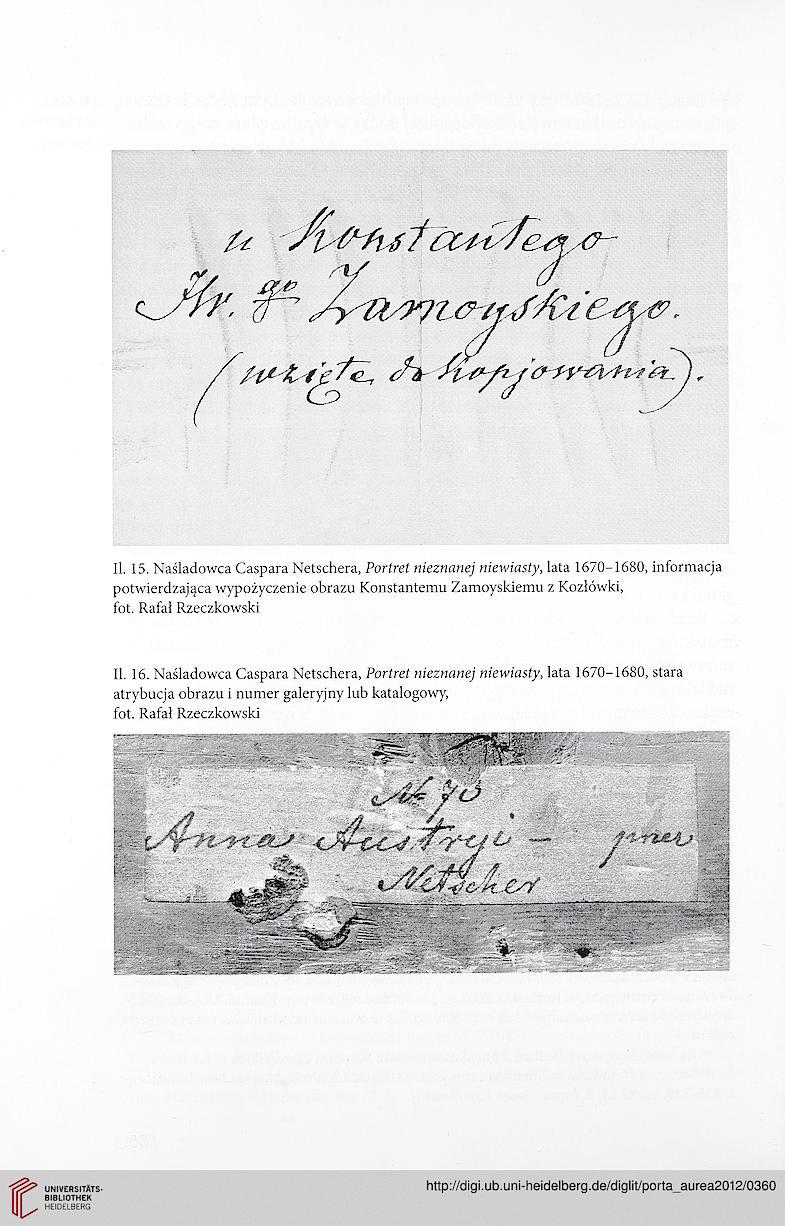 u Konstantego
Hr. go Zamoyskiego.
(wzięte do kopjowania).
Il. 15. Naśladowca Caspara Netschera, Portret nieznanej niewiasty, lata 1670–1680, informacja
potwierdzająca wypożyczenie obrazu Konstantemu Zamoyskiemu z Kozłówki,
fot. Rafał Rzeczkowski
Il. 16. Naśladowca Caspara Netschera, Portret nieznanej niewiasty, lata 1670–1680, stara
atrybucja obrazu i numer galeryjny lub katalogowy,
fot. Rafał Rzeczkowski
Anna Austryi – przez
Netscher
UNIVERSITÄTS-
BIBLIOTHEK
HEIDELBERG
http://digi.ub.uni-heidelberg.de/diglit/porta_aurea2012/0360